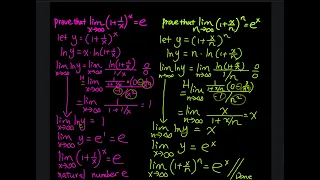 prove that lim x→∞ (1+1/x)^x = e
let y = (1+1/x)^x
ln y = x · ln(1+1/x)
lim x→∞ ln y = lim x→∞ ln(1+1/x) / 1/x 0/0
= lim x→∞ 1 / 1+1/x = 1
lim x→∞ ln y = 1
lim x→∞ y = e^1 = e
lim x→∞ (1+1/x)^x = e
natural number e
prove that lim n→∞ (1+x/n)^n = e^x
let y = (1+x/n)^n
ln y = n · ln(1+x/n)
lim n→∞ ln y = lim n→∞ ln(1+x/n) / 1/n 0/0
= lim n→∞ x / 1+x/n = x
lim n→∞ ln y = x
lim n→∞ y = e^x
lim n→∞ (1+x/n)^n = e^x //
Done